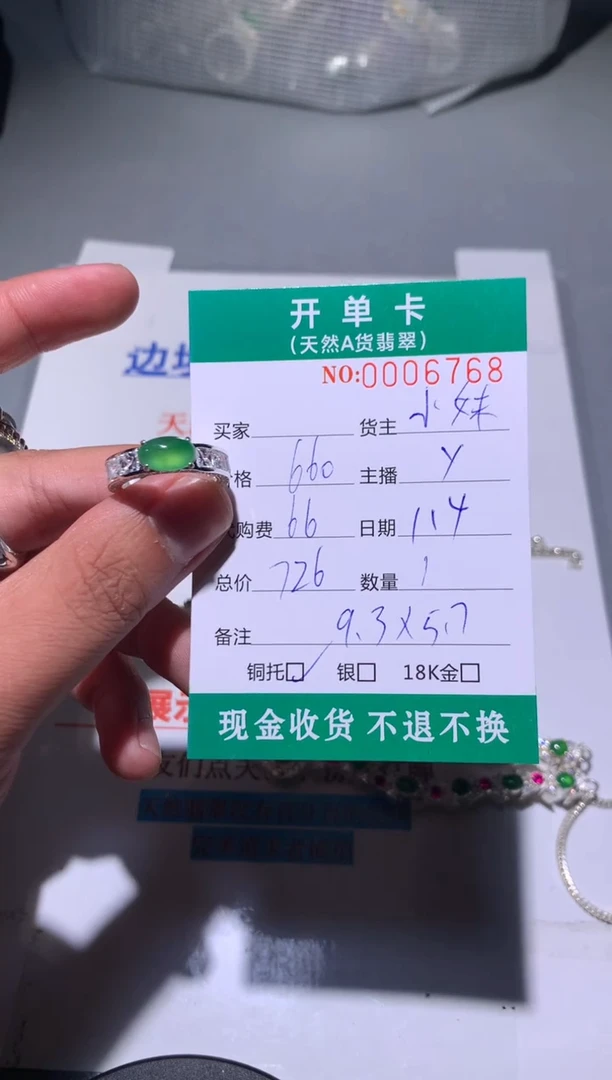 开单卡
(天然A货翡翠)
NO:0006768
买家 货主 小妹
格 660 主播 Y
购费 66 日期 114
总价 726 数量 1
备注 9.3X5.7
铜托☑ 银□ 18K金□
现金收货 不退不换
边
天
展示
们点天